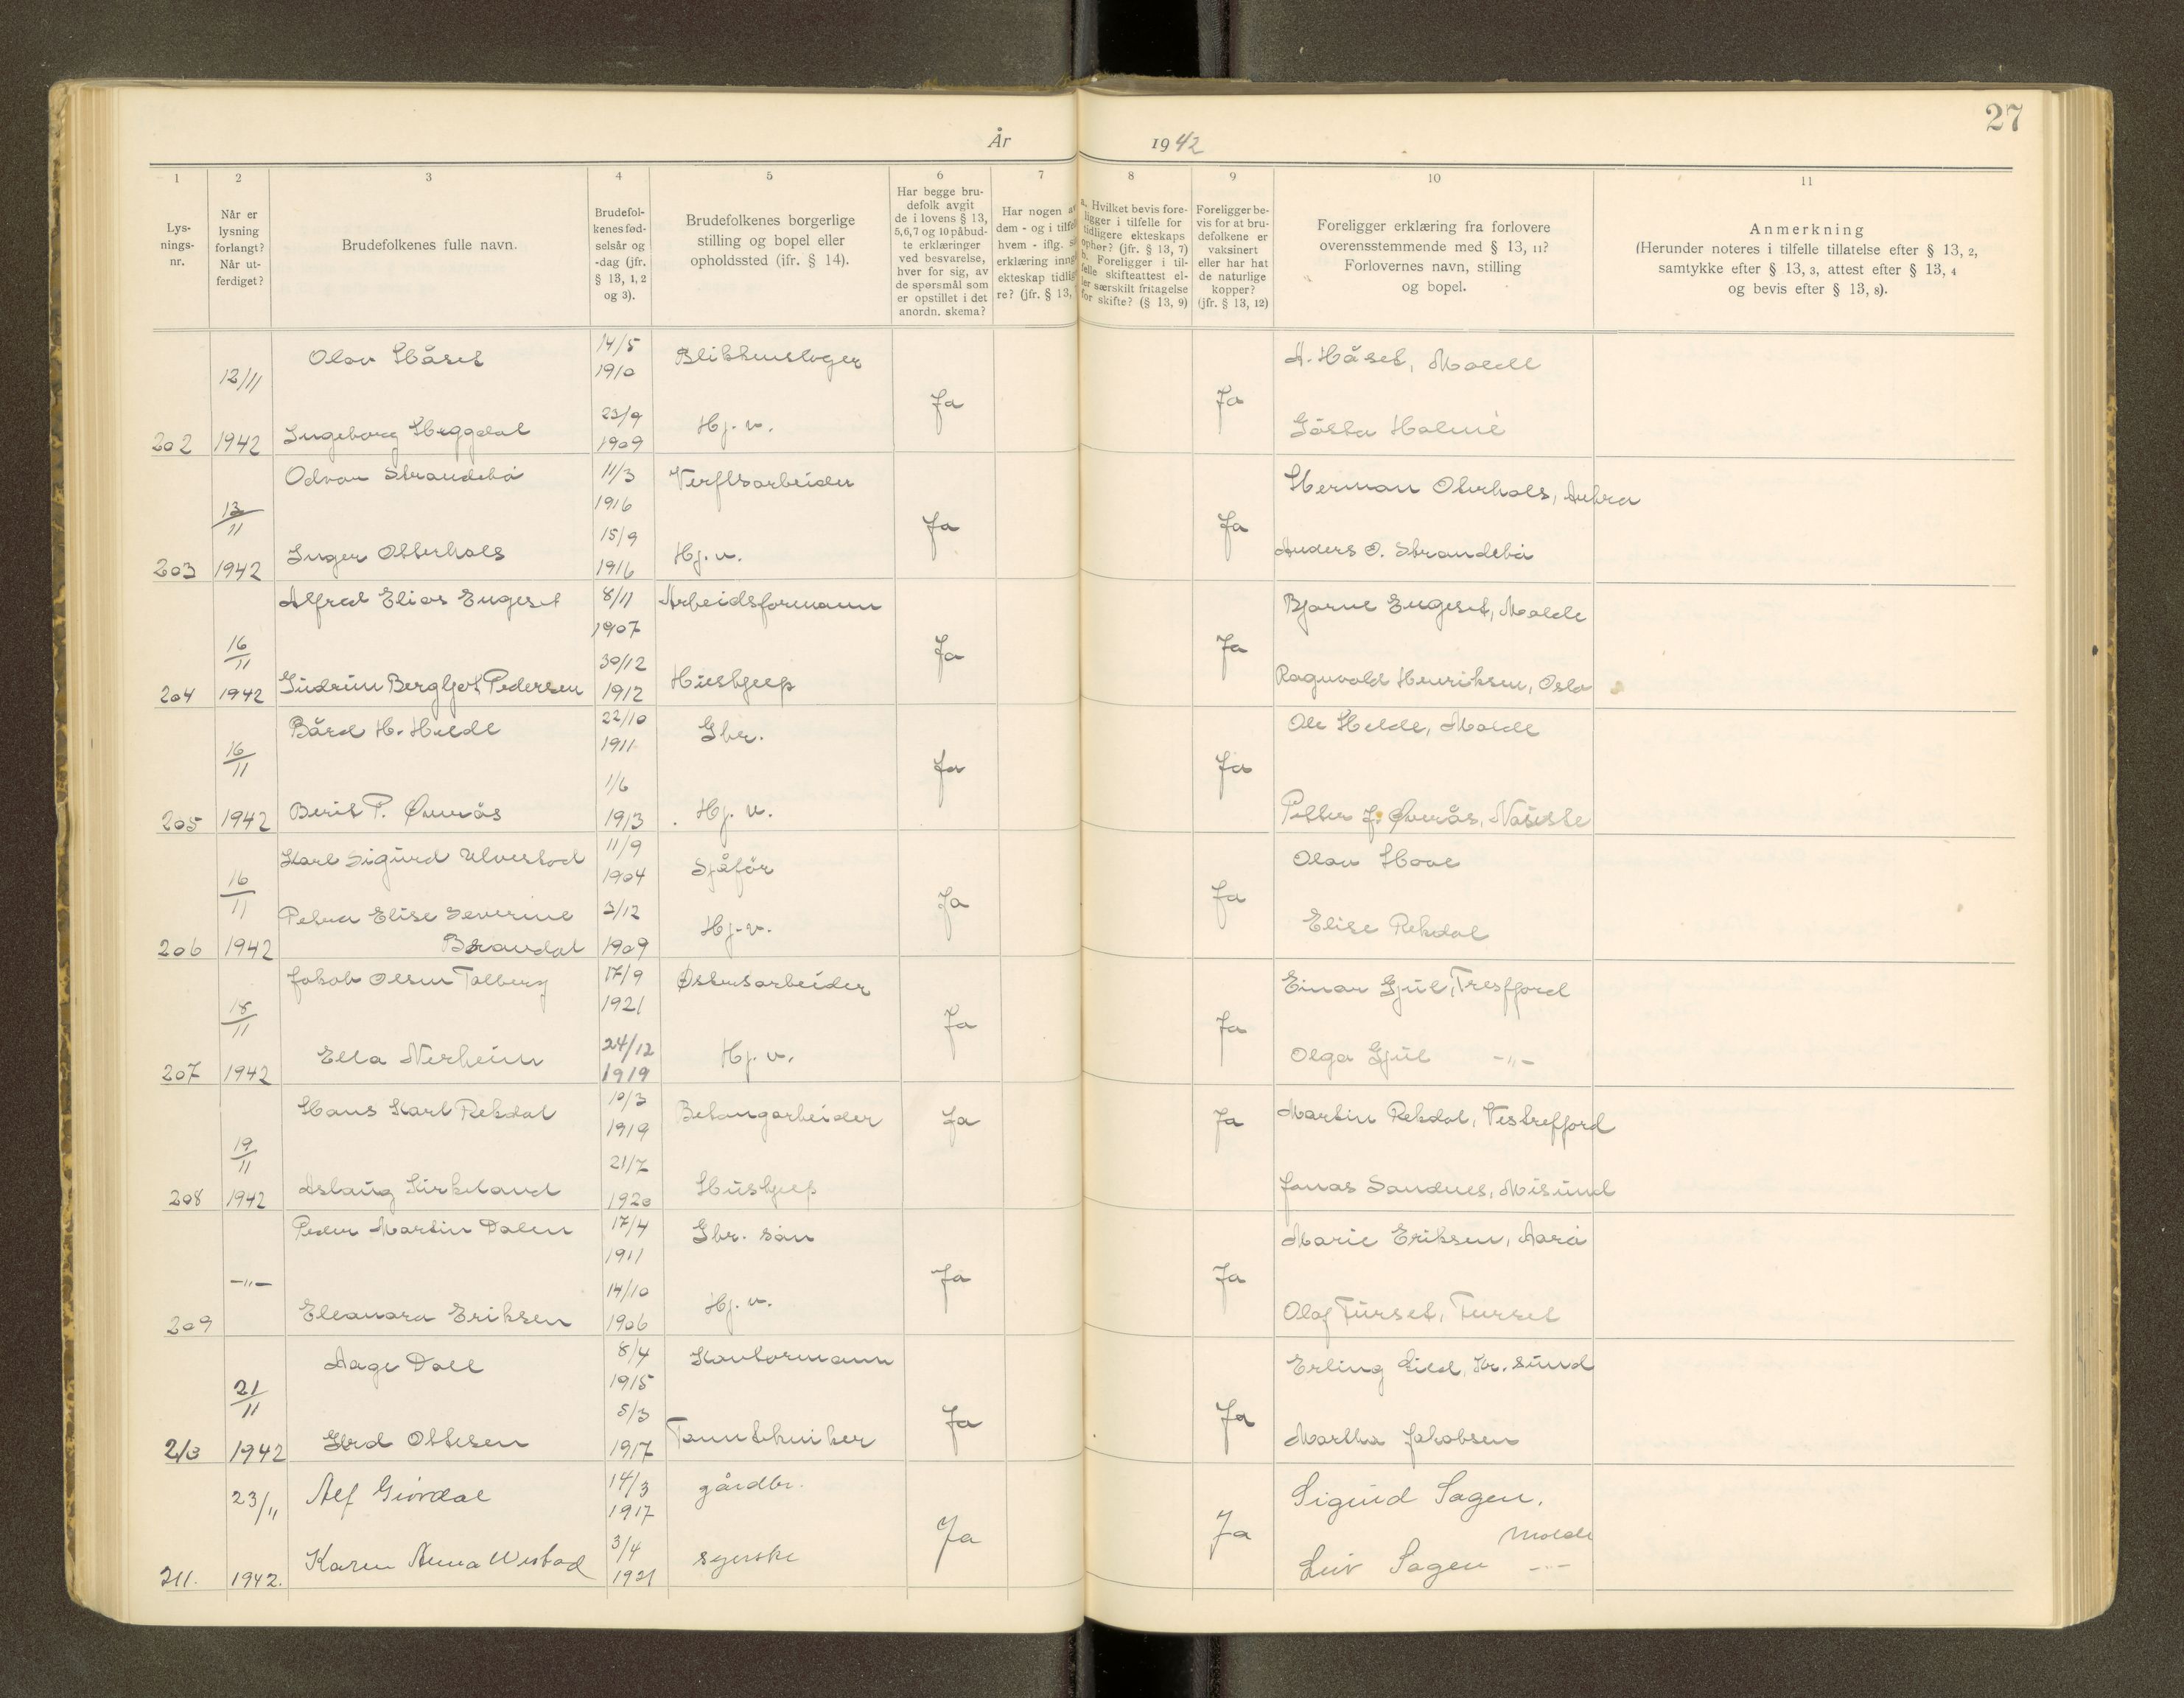 27
År 1942
1 2 3 4 5 6 7 8 9 10 11
Lys-
nings-
nr.
Når er
lysning
forlangt?
Når ut-
ferdiget?
Brudefolkenes fulle navn.
Brudefol-
kenes fød-
selsår og
-dag (jfr.
§ 13, 1, 2
og 3).
Brudefolkenes borgerlige
stilling og bopel eller
opholdssted (jfr. § 14).
Har begge bru-
defolk avgit
de i lovens § 13,
5,6,7 og 10 påbud-
te erklæringer
ved besvarelse,
hver for sig, av
de spørsmål som
er opstillet i det
anordn. skema?
Har nogen a
dem - og i tilfel
hvem - iflg. s
erklæring inng
ekteskap tidlig
re? (jfr. § 13,
a. Hvilket bevis fore-
ligger i tilfelle for
tidligere ekteskaps
ophør? (jfr. § 13, 7)
b. Foreligger i til-
felle skifteattest el-
ler særskilt fritagelse
for skifte? (§ 13, 9)
Foreligger be-
vis for at bru-
defolkene er
vaksinert
eller har hat
de naturlige
kopper?
(jfr. § 13, 12)
Foreligger erklæring fra forlovere
overensstemmende med § 13, 11?
Forlovernes navn, stilling
og bopel.
Anmerkning
(Herunder noteres i tilfelle tillatelse efter § 13, 2,
samtykke efter § 13, 3, attest efter § 13, 4
og bevis efter § 13, 8).
12/11 Olav Håset 14/5 1910 Blikkenslager Ja Ja A. Håset, Molde
202 1942 Ingeborg Heggdal 23/9 1909 Hj. v. Gösta Holme
13/11 Odvar Strandebø 11/3 1916 Verftsarbeider Ja Ja Herman Oterhals, Aukra
203 1942 Inger Otterhals 15/9 1916 Hj. v. Anders O. Strandebø
16/11 Alfred Elias Engeset 8/11 1907 Arbeidsformann Ja Ja Bjarne Engeset, Molde
204 1942 Gudrun Bergljot Pedersen 30/12 1912 Hushjelp Ragnvald Henriksen, Oslo
16/11 Bård H. Helde 22/10 1911 Gbr. Ja Ja Ole Helde, Molde
205 1942 Berit P. Øverås 1/6 1913 Hj. v. Petter J. Øverås,
16/11 Karl Sigurd Ulvestad 11/9 1904 Sjåfør Ja Ja Olav Hove
206 1942 Petra Elise Severine Brandal 3/12 1909 Hj. v. Elise Rekdal
18/11 Jakob Olsen Talberg 17/9 1921 Østersarbeider Ja Ja Einar Gjul, Tresfjord
207 1942 Ella Nerheim 24/12 1919 Hj. v. Olga Gjul -"-
19/11 Hans Karl Rekdal 10/3 1919 Betongarbeider Ja Ja Martin Rekdal, Vestrefjord
208 1942 Aslaug Kirkeland 21/7 1920 Hushjelp Jonas Sandnes, Misund
-"- Peder Martin Dalen 17/4 1911 Gbr. søn Ja Ja Marie Eriksen, Aarø
209 Eleanora Eriksen 14/10 1906 Hj. v. Olaf Turset, Turset
21/11 Aage Dall 8/4 1915 Kontormann Ja Ja Erling Lied, Kr. sund
210 1942 Gerd Ottesen 5/3 1917 Tanntekniker Martha Jakobsen
23/11 Alf Gjørdal 14/3 1917 gårdbr. Ja Ja Sigurd Sagen, Molde
211. 1942. Karen Anna Westad 3/4 1921 syerske Leiv Sagen -"-